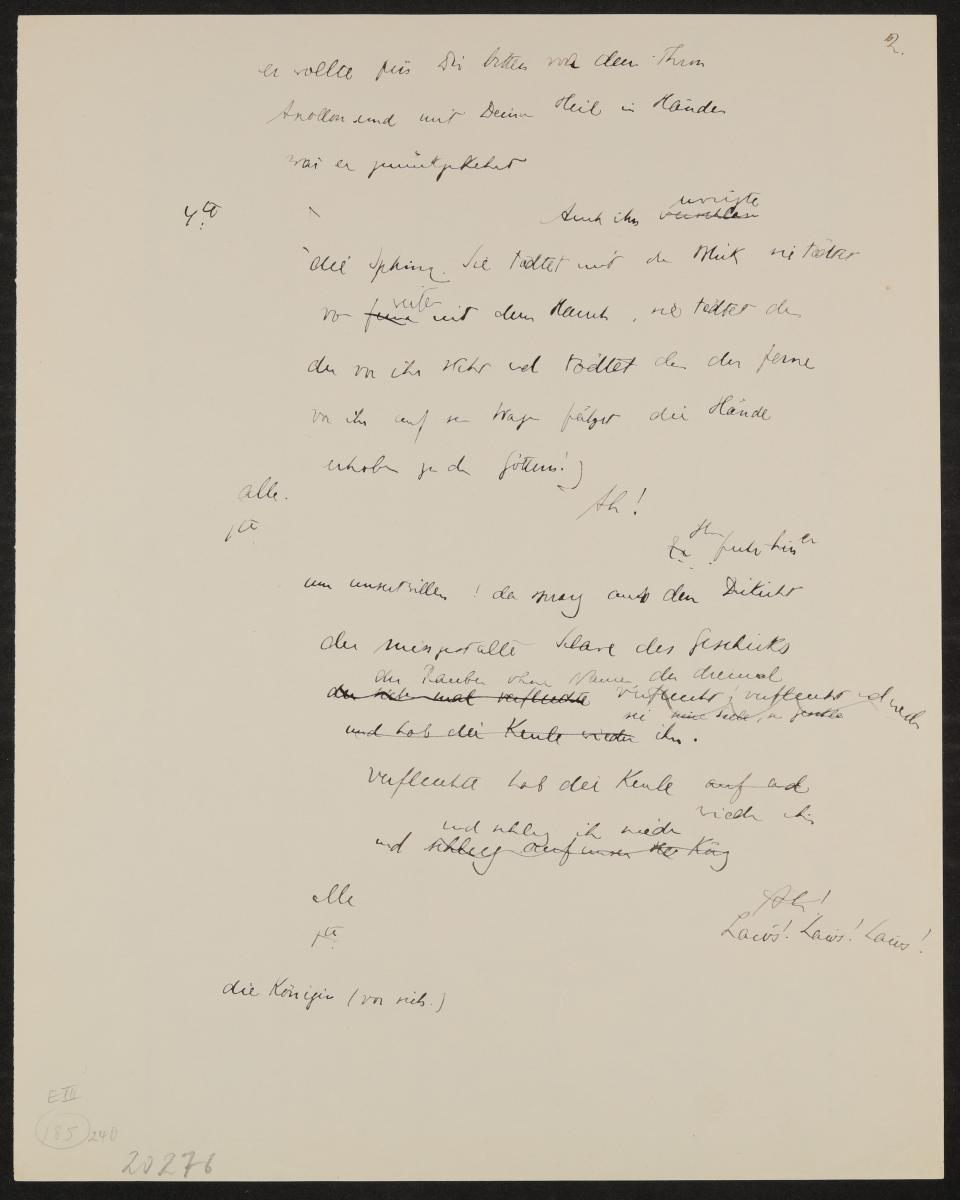 2.
er wollte für Dich bitten vor dem Thron
Apollon und mit Deinem Heil in Händen
wär er zurückgekehrt
4te
Auch ihn würgte
verschlang
die Sphinx. Sie tödtet mit dem Blick sie tödtet
von weiter
ferne mit dem Hauch, sie tödtet den
der vor ihr steht und tödtet den der ferne
von ihr auf dem Wagen fährt die Hände
erhoben zu den Göttern!)
alle.
Ah!
1te
Er fuhr hin
um unsertwillen! da sprang aus dem Dickicht
der missgestalte Sclave des Geschicks
der Räuber ohne Namen der dreimal
der sieben mal verfluchte verflucht! verflucht
und hob die Keule wieder ihn.
verfluchte hob die Keule auf und
wieder ihn
und schlug ihn nieder
und schlug auf unsern König
alle
Ah!
1te
Laïos! Laïos! Laïos!
die Königin (vor sich.)
E III
185 240
20276